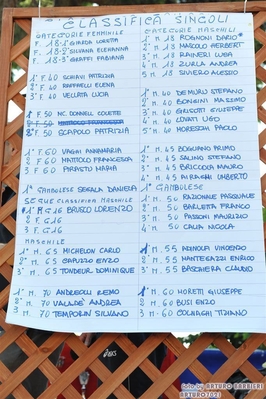 CLASSIFICA SINGOLI
CATEGORIE FEMMINILE
F. 18-1° GIARDA LORETTA
F. 18-2° SILVANA ELEHANNA
F. 18-3° GRAFFI FABIANA
1° F. 40 SCHIAVI PATRIZIA
2° F. 40 RAFFAELLI ELENA
3° F. 40 VELLATA LUCIA
1° F. 50 MC. DONNELL COLETTE
2° F. 50 SCAPOLO PATRIZIA
1° F. 60 VAGHI ANNAMARIA
2° F. 60 MATTIOLO FRANCESCA
3° F. 60 PIRASTU MARIA
1° GAMBOLESE SEGALA DANIELA
SEGUE CLASSIFICA MASCHILE
1° M G16 BRUSCO LORENZO
2° F. G16
3° F. G16
MASCHILE
1° M. 65 MICHELON CARLO
2° M. 65 CAPUZZO ENZO
3° M. 65 TONDEUR DOMINIQUE
1° M. 70 ANDREOLI REMO
2° M. 70 VALLDE' ANDREA
3° M. 70 TEMPORIN SILVANO
CATEGORIE MASCHILI
1° M 18 ROGNONI DARIO
2° M 18 MAICOLO HERBERT
3° M 18 RAINERI LUCA
4° M 18 ZURLA ANDREA
5° M 18 SIVIERO ALESSIO
1° M. 40 DEMURU STEFANO
2° M. 40 BONGINI MASSIMO
3° M. 40 GRISOTTI GIUSEPPE
4° M. 40 LOVATI UGO
5° M. 40 MORESCHI PAOLO
1° M. 45 BOGUANO PRIMO
2° M. 45 SALINO STEFANO
3° M. 45 BRICCOLA MAURO
4° M. 45 AIRAGHI UMBERTO
1° GAMBOLESE
1° M. 50 RAZIONALE PASQUALE
2° M. 50 BARLETTA FRANCO
3° M. 50 PASSONI MAURIZIO
4° M. 50 CALIA NICOLA
1° M. 55 AGNOLA VINCENZO
2° M. 55 MANTEGAZZI ENRICO
3° M. 55 BASCHIERA CLAUDIO
1° M. 60 MORETTI GIUSEPPE
2° M. 60 BUSI ENZO
3° M. 60 COLNAGHI TIZIANO
foto by ARTURO BARBIERI
ARTURO7051